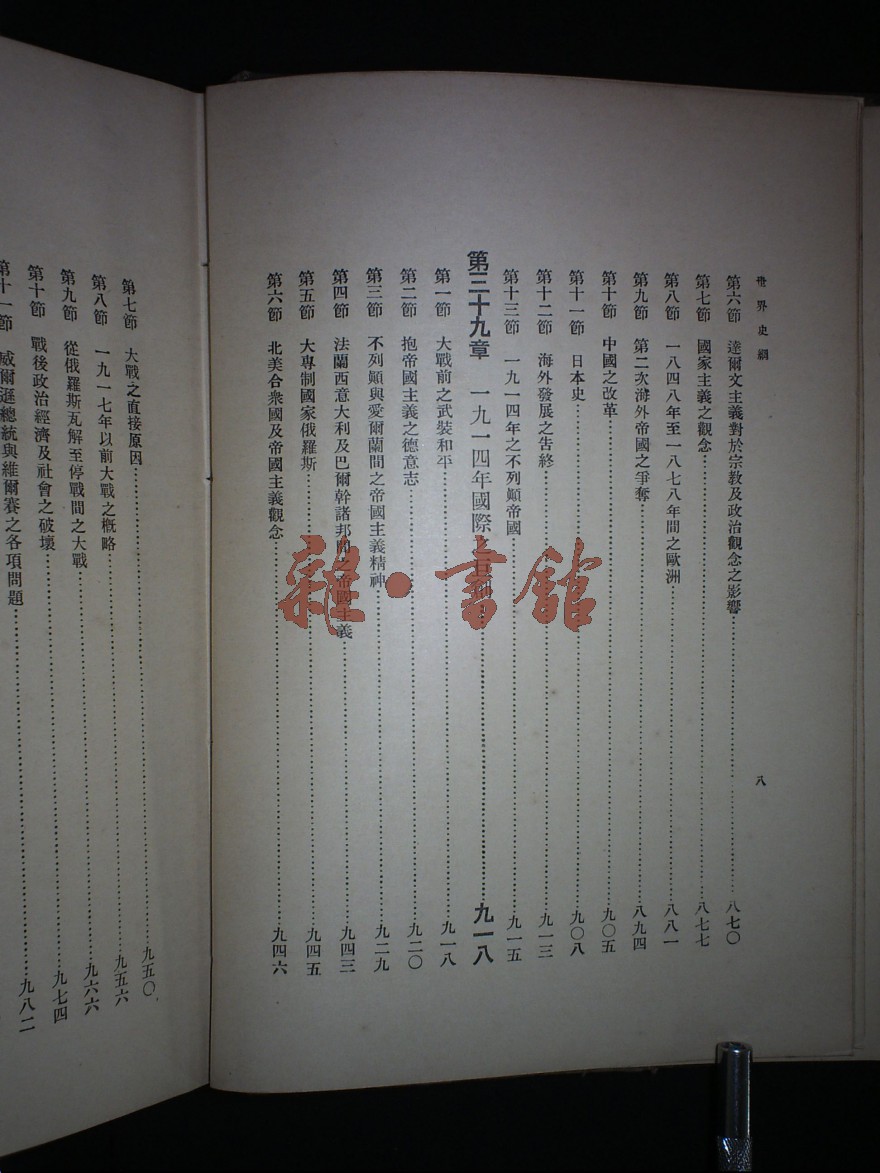 世界史綱
八
第六節 達爾文主義對於宗教及政治觀念之影響……八七〇
第七節 國家主義之觀念……八七七
第八節 一八四八年至一八七八年間之歐洲……八八一
第九節 第二次海外帝國之爭奪……八九四
第十節 中國之改革……九〇五
第十一節 日本史……九〇八
第十二節 海外發展之告終……九一三
第十三節 一九一四年之不列顛帝國……九一五
第三十九章 一九一四年國際之……九一八
第一節 大戰前之武裝和平……九一八
第二節 抱帝國主義之德意志……九二〇
第三節 不列顛與愛爾蘭間之帝國主義精神……九二九
第四節 法蘭西意大利及巴爾幹諸邦間之帝國主義……九四三
第五節 大專制國家俄羅斯……九四五
第六節 北美合衆國及帝國主義觀念……九四六
第七節 大戰之直接原因……九五〇
第八節 一九一七年以前大戰之概略……九五六
第九節 從俄羅斯瓦解至停戰間之大戰……九六六
第十節 戰後政治經濟及社會之破壞……九七四
第十一節 威爾遜總統與維爾賽之各項問題……九八二
雜·書館